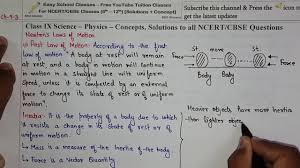 Easy Science Classes - Free YouTube Tuition Classes
for NCERT/CBSE Classes (Solutions + Concept)
Subscribe this channel & Press the icon
get the latest updates
Class IX Science – Physics – Concepts, Solutions to all NCERT/CBSE Questions
Ch-9-3
Newton's Laws of Motion
First Law of Motion: According to the first
law of motion "A body at rest will remain
at rest, and a body in motion will continue
in motion in a straight line with uniform
Speed, unless it is compelled by an external
force to change its state of rest or of
uniform motion."
Inertia: It is the property of a body due to which
it resists a change in its state of rest or of
uniform motion.
→ Mass is a measure of the inertia of the body.
→ Force is a Vector Quantity
St. move
move St.
Body Body
Heavier objects have more inertia
than lighter obje